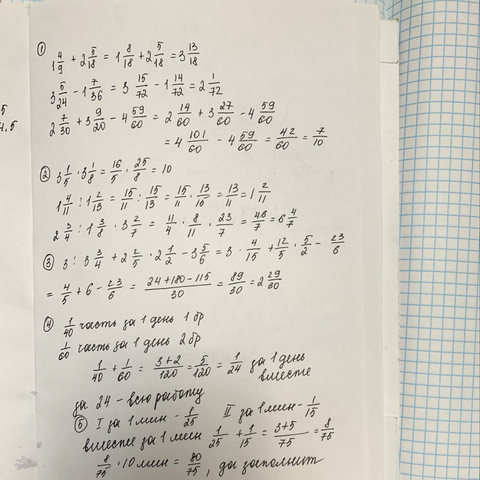 ①
1 4/9 + 2 5/18 = 1 8/18 + 2 5/18 = 3 13/18
3 5/24 - 1 7/36 = 3 15/72 - 1 14/72 = 2 1/72
2 7/30 + 3 9/20 - 4 59/60 = 2 14/60 + 3 27/60 - 4 59/60
= 4 101/60 - 4 59/60 = 42/60 = 7/10
② 3 1/5 · 3 1/8 = 16/5 · 25/8 = 10
1 4/11 : 1 2/13 = 15/11 : 15/13 = 15/11 · 13/15 = 13/11 = 1 2/11
2 3/4 : 1 3/8 · 3 2/7 = 11/4 · 8/11 · 23/7 = 46/7 = 6 4/7
③ 3 : 3 3/4 + 2 2/5 · 2 1/2 - 3 5/6 = 3 · 4/15 + 12/5 · 5/2 - 23/6
= 4/5 + 6 - 23/6 = 24+180-115/30 = 89/30 = 2 29/30
④ 1/40 часть за 1 день 1 бр
1/60 часть за 1 день 2 бр
1/40 + 1/60 = 3+2/120 = 5/120 = 1/24 за 1 день
вместе
за 24 - всю работу
⑤ I за 1 мин - 1/25 II за 1 мин - 1/15
вместе за 1 мин 1/25 + 1/15 = 3+5/75 = 8/75
8/75 · 10 мин = 80/75, да заполнит
5
4.5